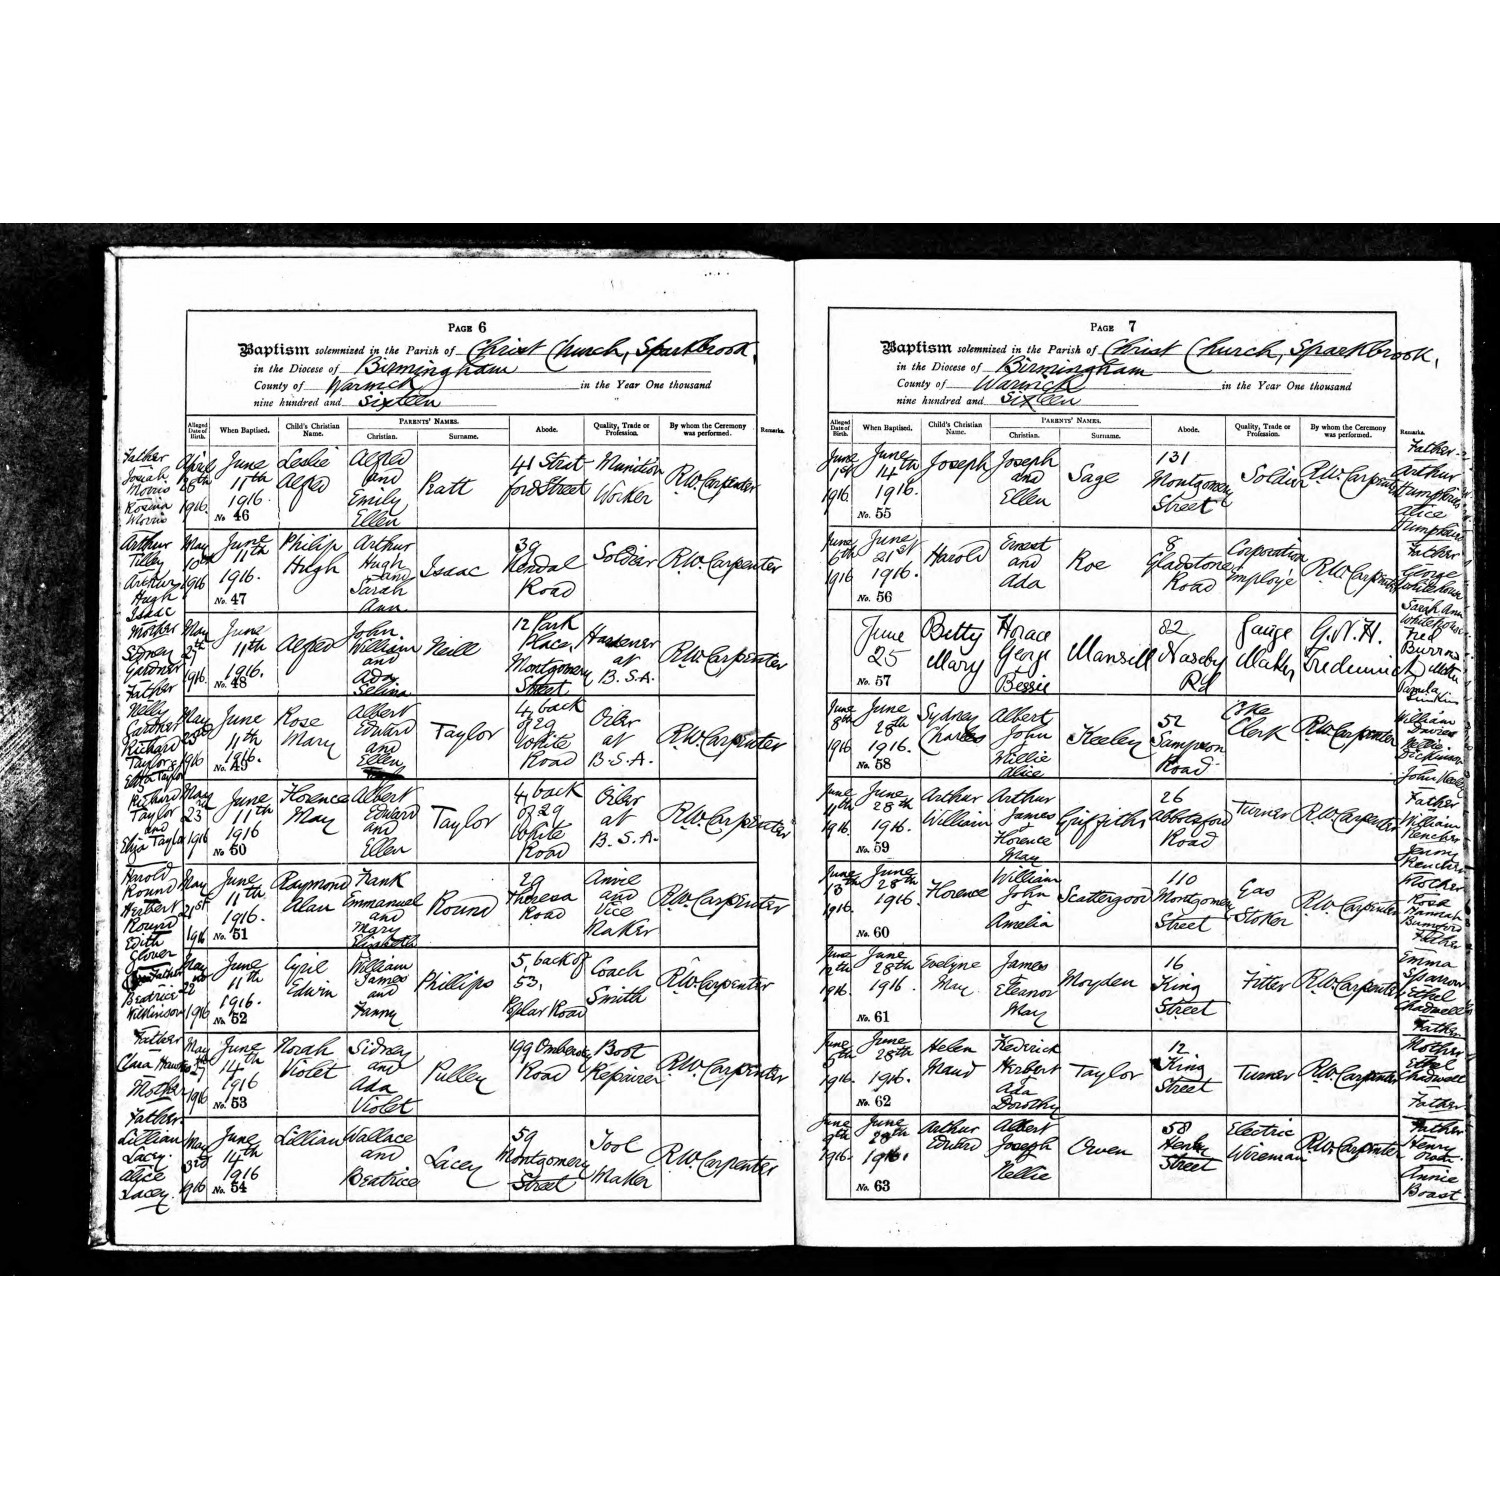 PAGE 6
Baptism solemnized in the Parish of Christ Church, Sparkbrook,
in the Diocese of Birmingham
County of Warwick in the Year One thousand
nine hundred and Sixteen
Alleged Date of Birth. When Baptised. Child's Christian Name. PARENTS' NAMES. Christian. Surname. Abode. Quality, Trade or Profession. By whom the Ceremony was performed. Remarks.
Father Josiah Morris Rosina Morris
April 28th 1916 June 11th 1916. No. 46 Leslie Alfred Alfred and Emily Ellen Pratt 41 Stratford Street Munition Worker R.W. Carpenter
Arthur Tilley Arthur Hugh Isaac
May 10th 1916 June 11th 1916. No. 47 Philip Hugh Arthur Hugh and Sarah Ann Isaac 39 Kendal Road Soldier R.W. Carpenter
Mother Sidney Gardner Father
May 27th 1916. June 11th 1916. No. 48 Alfred John William and Ada Selina Neill 12 Park Place, Montgomery Street Hardener at B.S.A. R.W. Carpenter
Nelly Gardner Richard Taylor & Eliza Taylor
May 23rd 1916 June 11th 1916. No. 49 Rose Mary Albert Edward and Ellen Taylor 4 back of 29 White Road Oiler at B.S.A. R.W. Carpenter
Richard Taylor and Eliza Taylor
May 23rd 1916 June 11th 1916 No. 50 Florence May Albert Edward and Ellen Taylor 4 back of 29 White Road Oiler at B.S.A. R.W. Carpenter
Harold Round Herbert Round Edith Glover
May 21st 1916 June 11th 1916. No. 51 Raymond Alan Frank Emmanuel and Mary Elizabeth Round 29 Theresa Road Anvil and Vice Maker R.W. Carpenter
Father Beatrice Wilkinson
May 22nd 1916 June 11th 1916. No. 52 Cyril Edwin William James and Fanny Phillips 5, back of 53, Poplar Road Coach Smith R.W. Carpenter
Father Clara Mother
May 1916 June 14th 1916 No. 53 Norah Violet Sidney and Ada Violet Pulley 199 Ombersley Road Boot Repairer R.W. Carpenter
Father Lillian Lacey. Alice Lacey.
May 3rd 1916 June 14th 1916 No. 54 Lillian Wallace and Beatrice Lacey 59 Montgomery Street Tool Maker R.W. Carpenter
PAGE 7
Baptism solemnized in the Parish of Christ Church, Sparkbrook,
in the Diocese of Birmingham
County of Warwick in the Year One thousand
nine hundred and Sixteen
Alleged Date of Birth. When Baptised. Child's Christian Name. PARENTS' NAMES. Christian. Surname. Abode. Quality, Trade or Profession. By whom the Ceremony was performed. Remarks.
June 1st 1916 June 14th 1916. No. 55 Joseph Joseph and Ellen Sage 131 Montgomery Street Soldier R.W. Carpenter
Father Arthur Humphries Alice Humphries
June 6th 1916 June 21st 1916. No. 56 Harold Ernest and Ada Roe 8 Gladstone Road Corporation Employe R.W. Carpenter
Father George Whitehouse Sarah Ann Whitehouse
June 25 No. 57 Betty Mary Horace George Bessie Mansill 82 Naseby Rd Gauge Maker G.N.H. Frederick
Fred Burrns Pamela
June 8th 1916 June 28th 1916. No. 58 Sydney Charles Albert John Millie Alice Keeley 52 Sampson Road Clerk R.W. Carpenter
William Davies Nellie Dickinson John Keeley
June 11th 1916. June 28th 1916. No. 59 Arthur William Arthur James Florence May Griffiths 26 Abbotsford Road Turner R.W. Carpenter
Father William Rencher Jenny Rencher
June 13th 1916. June 28th 1916 No. 60 Florence William John Amelia Scattergood 110 Montgomery Street Gas Stoker R.W. Carpenter
Mother Rose Hannah Father
June 12th 1916. June 28th 1916. No. 61 Evelyne May James Eleanor May Moyden 16 King Street Fitter R.W. Carpenter
Emma Sparrow Ethel Chadwell Father
June 1916. June 28th 1916. No. 62 Helen Maud Frederick Herbert Ada Dorothy Taylor 12 King Street Turner R.W. Carpenter
Mother Ethel Chadwell Father
June 9th 1916. June 28th 1916. No. 63 Arthur Edward Albert Joseph Nellie Owen 58 Henley Street Electric Wireman R.W. Carpenter
Father Henry Owen Annie Boast.